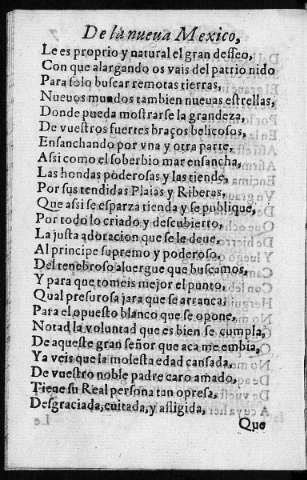 De la nueua Mexico,
Le es proprio y natural el gran desseo,
Con que alargando os vais del patrio nido
Para solo buscar remotas tierras,
Nueuos mundos tambien nueuas estrellas,
Donde pueda mostrarse la grandeza,
De vuestros fuertes braços belicosos,
Ensanchando por vna y otra parte,
Assi como el soberbio mar ensancha,
Las hondas poderosas y las tiende,
Por sus tendidas Plaias y Riberas,
Que assi se esparza tienda y se publique,
Por todo lo criado y descubierto,
La justa adoracion que se le deue,
Al principe supremo y poderoso,
Del tenebroso aluergue que buscamos,
Y para que tomeis mejor el punto,
Qual presurosa jara que se arranca,
Para el opuesto blanco que se opone,
Notad la voluntad que es bien se cumpla,
De aqueste gran señor que aca me embia,
Ya veis que la molesta edad cansada,
De vuestro noble padre caro amado,
Tiene su Real persona tan opresa,
Desgraciada, cuitada, y afligida,
Que